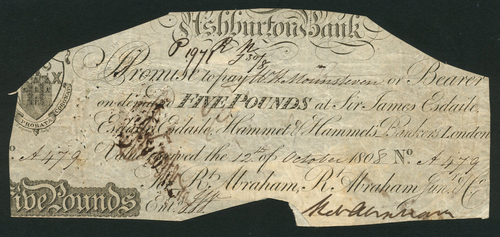 Ashburton Bank
Promise to pay Mr. H. Mountsteven or Bearer
on demand FIVE POUNDS at Sir James Esdaile,
Esdaile, Hammet & Hammets, Bankers London
Value received the 12th. of October 1808 No. A479
No. A479
For Rt. Abraham, R. Abraham Junr. & Co.
Five Pounds
Ent.